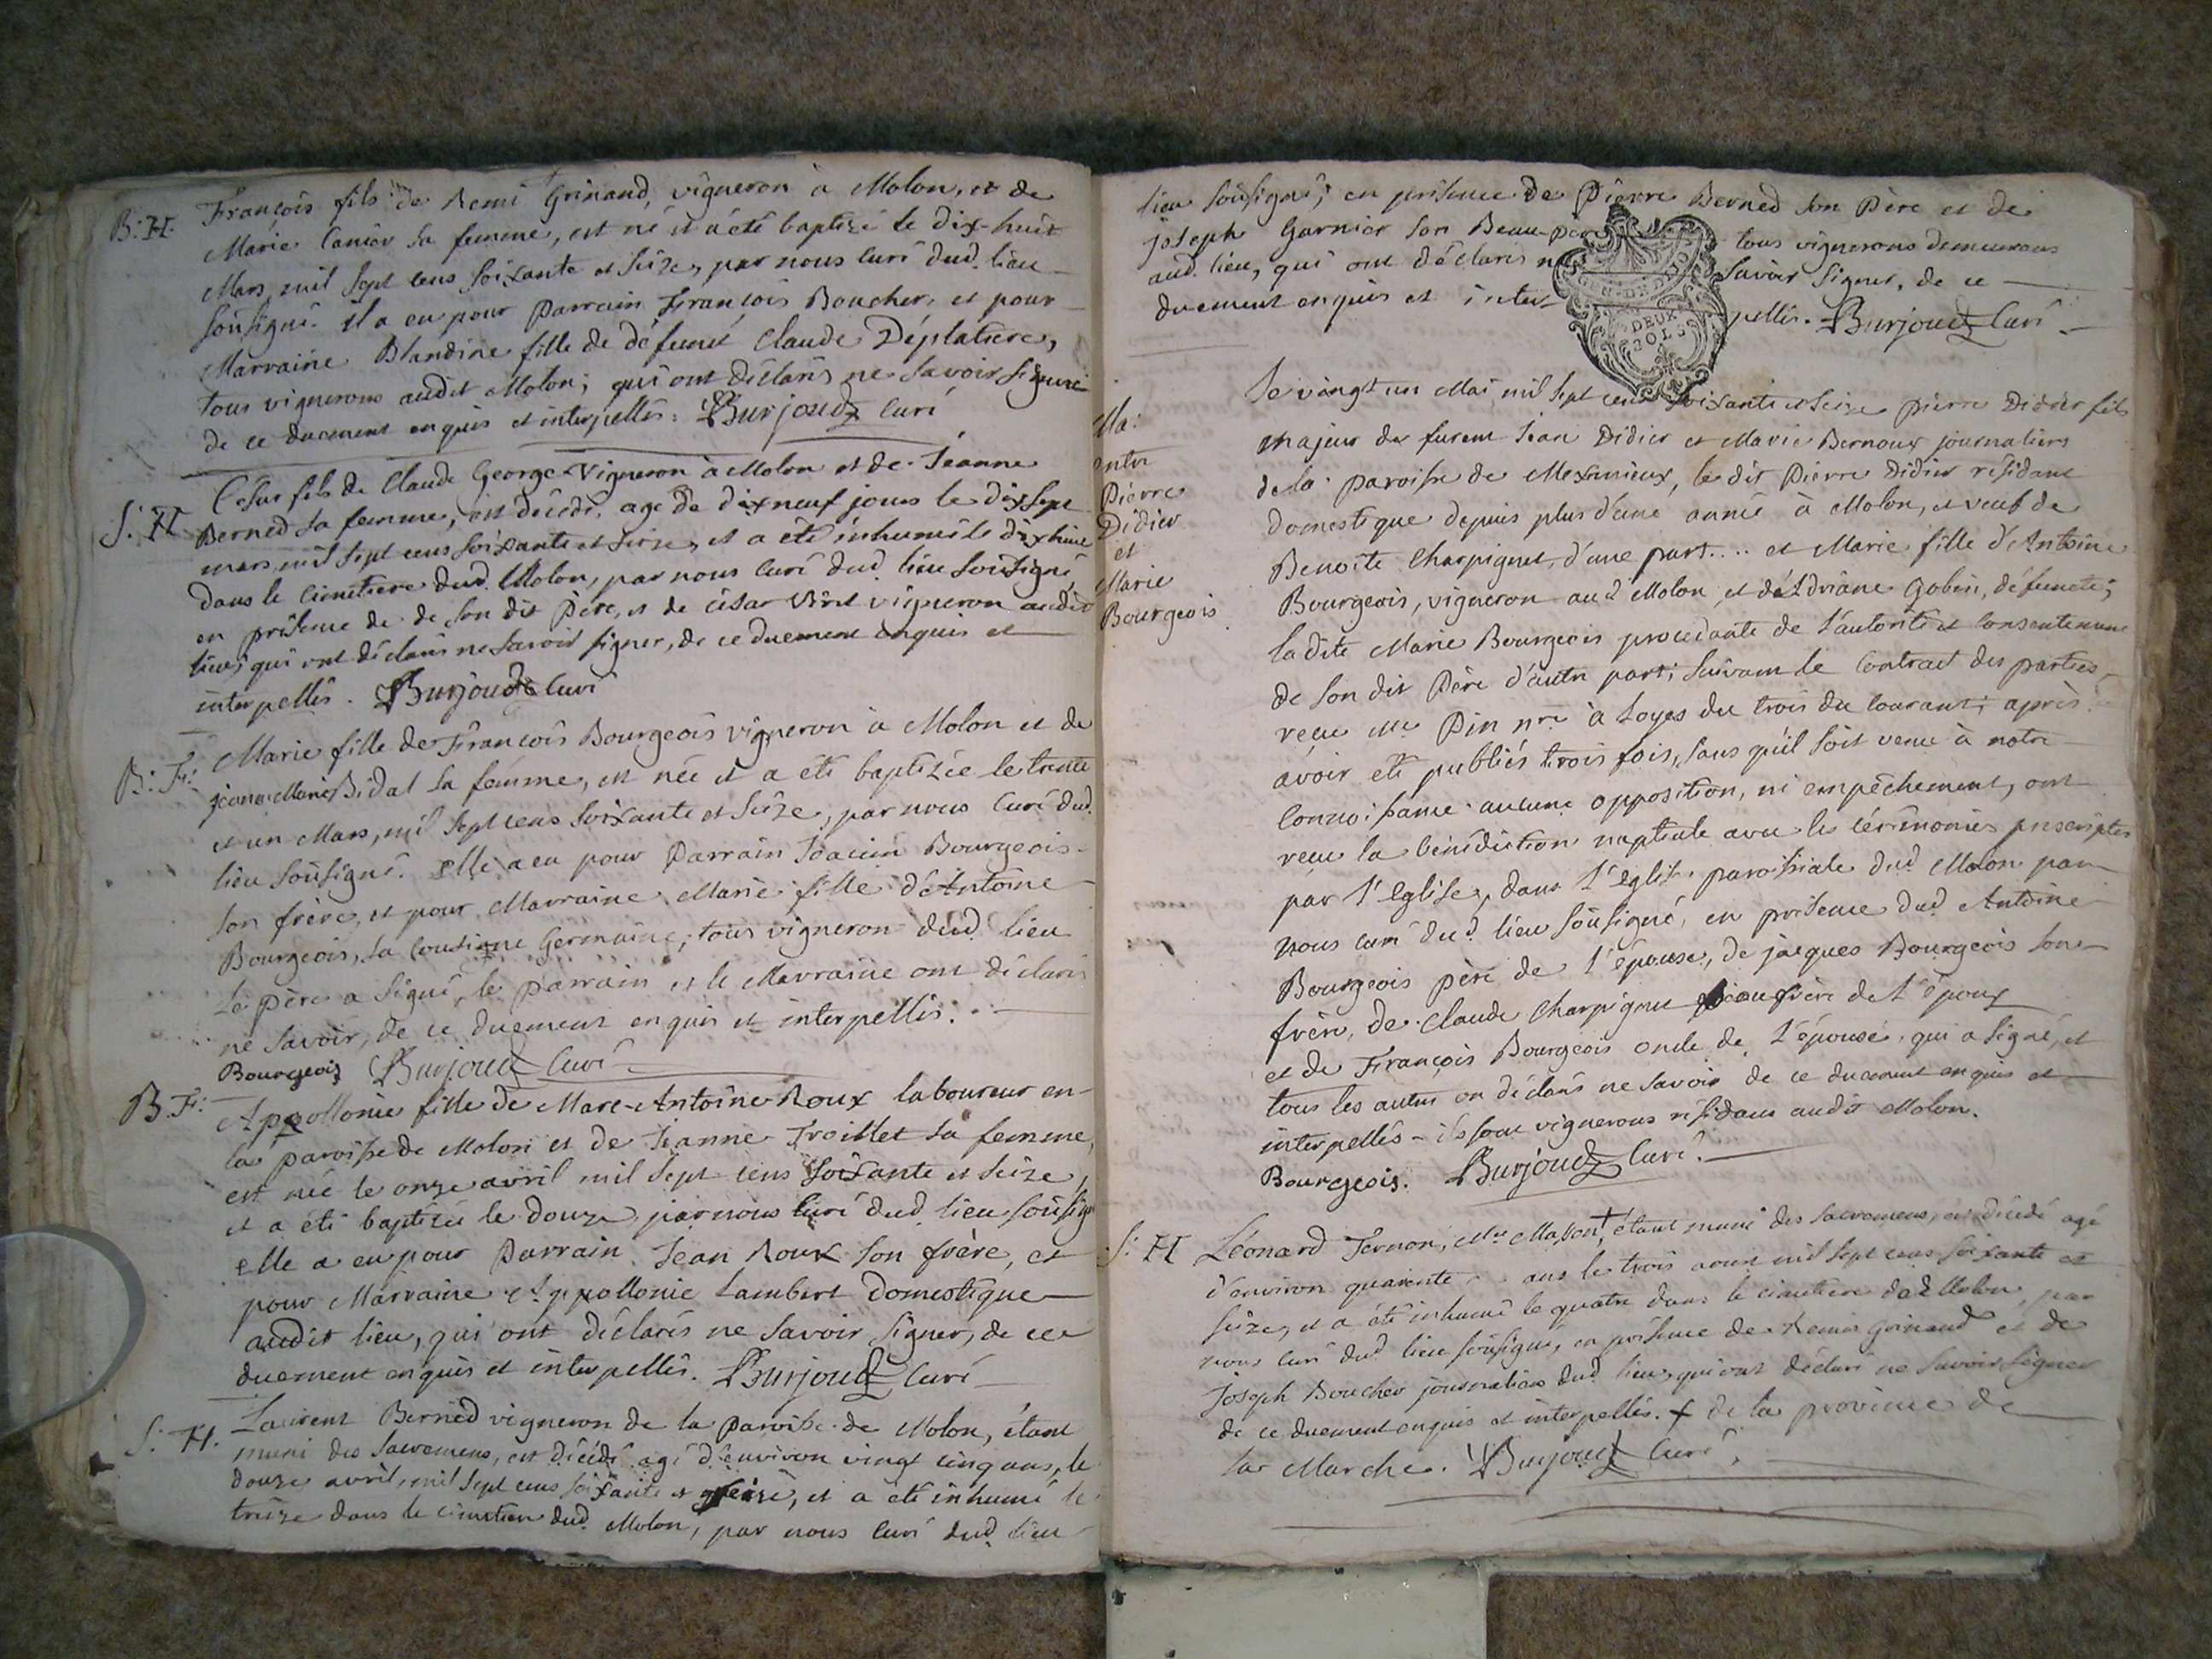 B: H. François fils de Remi Grinand, vigneron à Molon, et de
Marie Canier sa femme, est né et a été baptizé le dix-huit
Mars mil sept cens soixante et seize, par nous Curé dud. lieu
soûsigné. il a eu pour Parrain François Boucher, et pour
Marraine Blandine fille de défunt Claude Déplatiere,
tous vignerons audit Molon; qui ont déclarés ne savoir signer
de ce duement enquis et interpellés. Burjoud Curé
S. H Cesar fils de Claude George Vigneron à Molon et de Jeanne
Berned sa femme, est décédé, agé de dixneuf jours le dix sept
mars mil sept cens soixante et seize, et a été inhumé le dix huit
dans le cimetiere dud. Molon, par nous Curé dud. lieu soûsigné,
en présence de de son dit Père, et de césar vigneron audit
lieu; qui ont déclarés ne savoir signer, de ce duement enquis et
interpellés. Burjoud Curé
B: F: Marie fille de François Bourgeois vigneron à Molon et de
jeanne Marie Bidal sa femme, est née et a été baptizée le trente
et un Mars, mil sept cens soixante et seize, par nous Curé dud.
lieu soûsigné. elle a eu pour Parrain Joacim Bourgeois
son frère, et pour Marraine Marie fille d'Antoine
Bourgeois, sa Cousine Germaine; tous vigneron dud. lieu
Le père a signé, le parrain et le Marraine ont déclarés
ne savoir, de ce duement enquis et interpellés.
Bourgeois Burjoud Curé
B. F: Appollonie fille de Marc-Antoine Roux laboureur en
la paroisse de Molon et de Jeanne Troillet sa femme,
est née le onze avril mil sept cens soixante et seize,
et a été baptizée le douze, par nous Curé dud. lieu soûsigné
elle a eu pour Parrain Jean Roux son frère, et
pour Marraine Appollonie Lambert Domestique
audit lieu, qui ont déclarés ne savoir signer, de ce
duement enquis et interpellés. Burjoud Curé
S: H. Laurent Berned vigneron de la Paroisse de Molon, étant
muni des sacremens, est décédé agé d'environ vingt cinq ans, le
douze avril, mil sept cens soixante et seize, et a été inhumé le
treize dans le cimetiere dud. Molon, par nous Curé dud. lieu
lieu soûsigné; en présence de Pierre Berned son Père et de
joseph Garnier son Beau-père tous vignerons demeurans
aud. lieu, qui ont déclarés ne savoir signer, de ce
duement enquis et inter-pellés. Burjoud Curé
DEUX
SOLS
Ma:
entre
Pierre
Didier
et
Marie
Bourgeois
Le vingt un Mai mil sept cens soixante et seize pierre Didier fils
majeur de furent Jean Didier et Marie Bernoux journaliers
de la Paroisse de Meximieux, le dit Pierre Didier résidant
domestique depuis plus d'une année à Molon, et veuf de
Benoite Charpignet, d'une part.... et Marie fille d'Antoine
Bourgeois, vigneron aud Molon et d'Adriane Gobin, défuncte;
la dite Marie Bourgeois procedante de l'autorité et consentement
de son dit Père d'autre part; suivant le Contract des parties
reçu Me Pin nre à Loyes du trois du courant; après
avoir été publiés trois fois, sans qu'il soit venu à notre
connoissance aucune opposition, ni empêchement, ont
reçu la bénédiction nuptiale avec les cérémonies prescriptes
par l'Eglise, dans l'Eglise paroissiale dud Molon par
nous curé dud. lieu soûsigné, en présence dud Antoine
Bourgeois père de l'épouse, de jacques Bourgeois son
frère, de Claude Charpignet beaufrère de l'époux
et de François Bourgeois oncle de l'épouse, qui a signé, et
tous les autres on déclarés ne savoir de ce duement enquis et
interpellés - ils sont vignerons résidans audit Molon.
Bourgeois. Burjoud Curé.
S: H Léonard Ternon, Me Masson + étant muni des sacremens, est décédé agé
d'environ quarente ans le trois aout mil sept cens soixante et
seize, et a été inhumé le quatre dans le cimetiere dud Molon, par
nous Curé dud. lieu soûsigné, en présence de Remi Grinand et de
joseph Boucher journaliers dud. lieu, qui ont déclaré ne savoir signer
de ce duement enquis et interpellés. + de la province de
la Marche. Burjoud Curé.